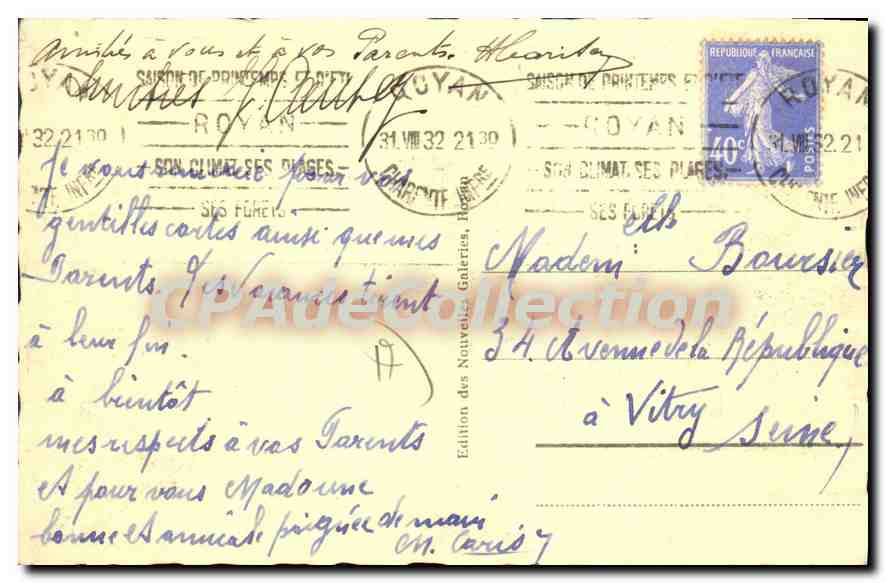 Amitiés à vous et à vos Parents.
SAISON DE PRINTEMPS ET D'ÉTÉ
ROYAN
SON CLIMAT-SES PLAGES-
SES FORÊTS
ROYAN
31.VIII 32 21 30
CHARENTE INFRE
SAISON DE PRINTEMPS ET D'ÉTÉ
ROYAN
SON CLIMAT-SES PLAGES.
SES FORÊTS
ROYAN
31.VIII 32.21
CHARENTE INFRE
OYAN
32.21 30
TE INFRE
REPUBLIQUE FRANÇAISE
40c
POSTES
Je vous remercie pour vos
gentilles cartes ainsi que mes
Parents. Les vacances tirent
à leur fin.
à bientôt
mes respects à vos Parents
et pour vous Madoune
bonne et amicale poignée de main
M. Caris
17
Edition des Nouvelles Galeries, Royan
Madem elle Boursier
34. Avenue de la République
à Vitry
Seine
CPAdeCollection